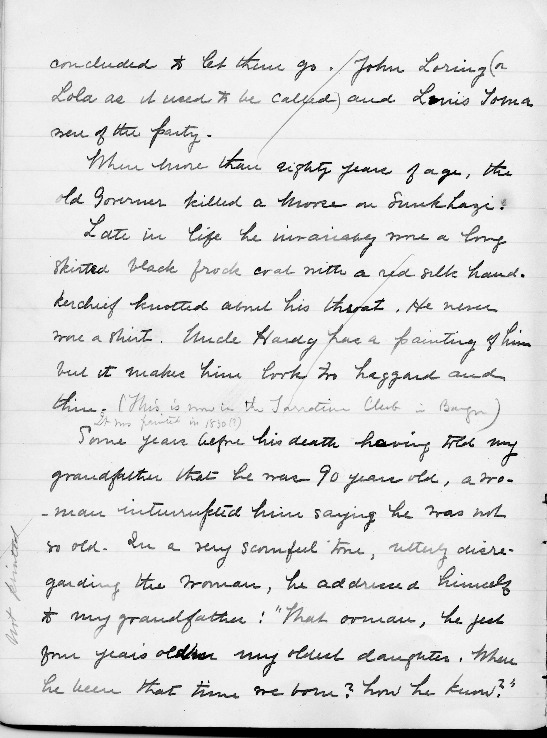 concluded to let them go. John Loring (or
Lola as it used to be called) and Louis Toma
were of the party.
When more than eighty years of age, the
old Governor killed a moose on Sunkhaze.
Late in life he invariably wore a long
skirted black frock coat with a red silk hand-
kerchief knotted about his throat. He never
wore a shirt. Uncle Hardy has a painting of him
but it makes him look too haggard and
thin. (This is now in the Tarratine Club in Bangor)
It was painted in 1830(?)
Some years before his death having told my
grandfather that he was 90 years old, a wo-
-man interrupted him saying he was not
so old. In a very scornful tone, utterly disre-
garding the woman, he addressed himself
to my grandfather: "That ooman, he just
four years older my oldest daughter. Where
he been that time me born? how he know?"
Not printed